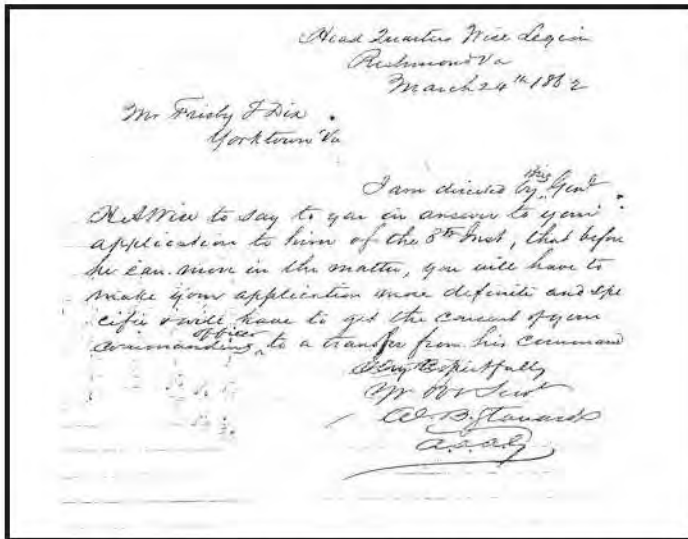 Head Quarters Wise Legion
Richmond Va
March 24th 1862
Mr Frisby J Dix
Yorktown Va
I am directed by Brig Genl
H A Wise to say to you in answer to your
application to him of the 8th Inst, that before
he can move in the matter, you will have to
make your application more definite and spe
cific & will have to get the consent of your
commanding officer to a transfer from his command
Very Respectfully
Yr Obt Servt
B. Stanard
A.A.A.G